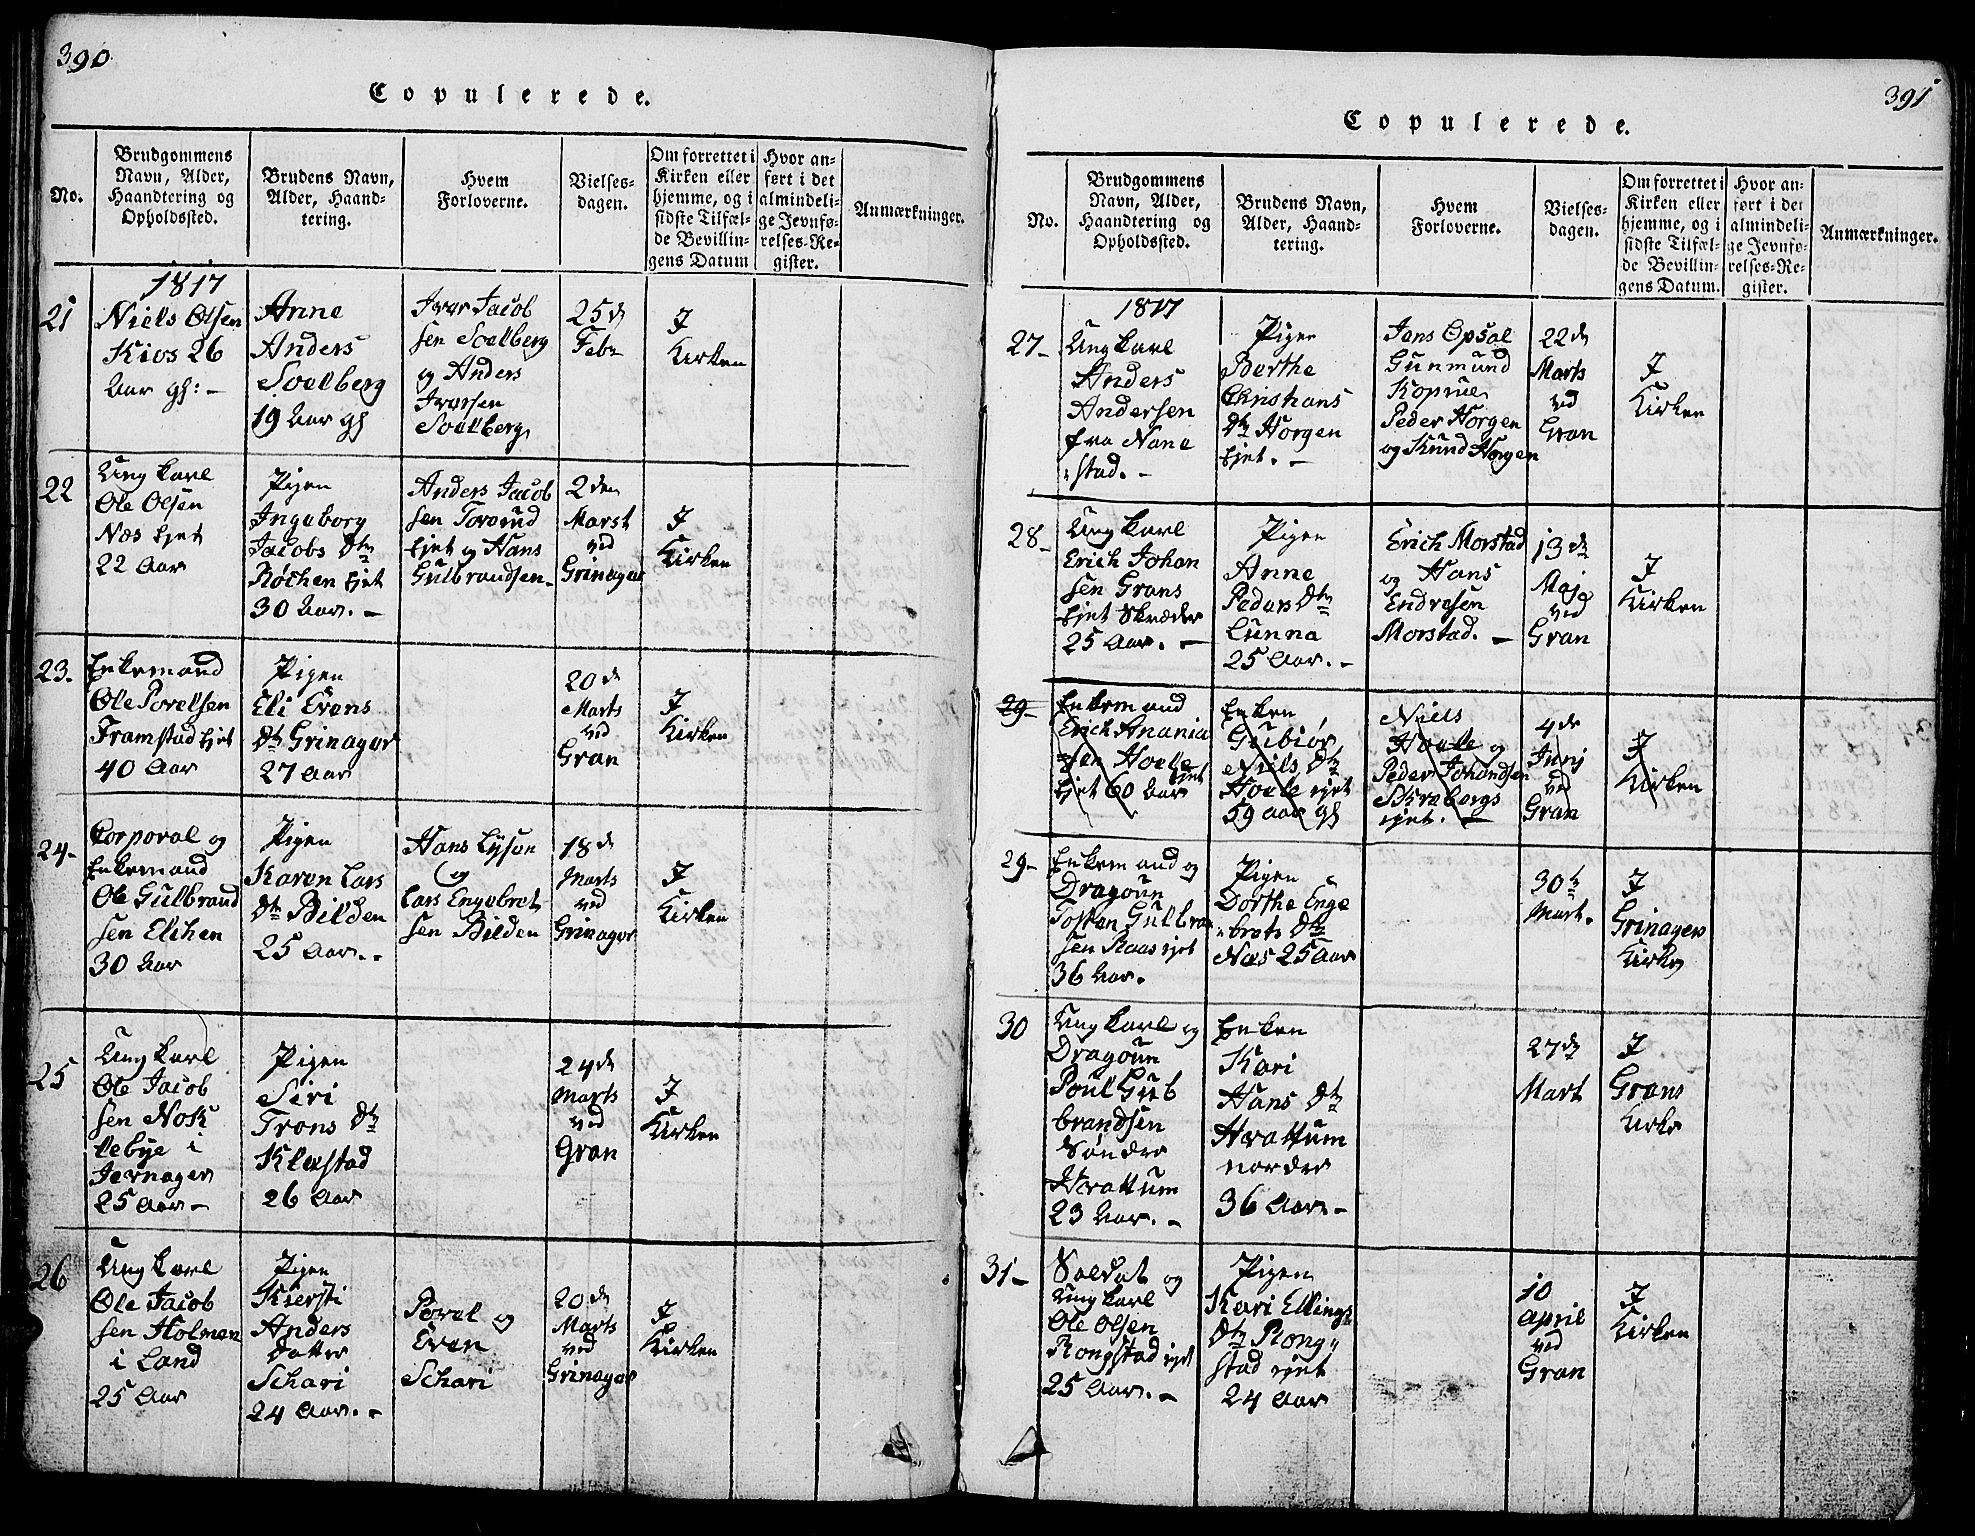 390
Copulerede.
No.
Brudgommens
Navn, Alder,
Haandtering og
Opholdssted.
Brudens Navn,
Alder, Haand-
tering.
Hvem
Forloverne.
Vielses-
dagen.
Om forrettet i
Kirken eller
hjemme, og i
sidste Tilfæl-
de Bevillin-
gens Datum
Hvor an-
ført i det
almindeli-
ge Jevnfø-
relses-Re-
gister.
Anmærkninger.
1817
21
Niels Olsen
Kios 26
Aar gh: -
Anne
Anders
Soelberg
19 Aar gh
Iver Jacob
sen Soelberg
og Anders
Iversen
Soelberg
25 d
Febr
I
Kirken
22
Ung karl
Ole Olsen
Næs Ejet
22 Aar
Pigen
Ingeborg
Jacobs Dtr
Røchen Ejet
30 Aar. -
Anders Jacob
sen Torsrud
Ejet og Hans
Gulbrandsen
2 den
Marst
ved
Grinager
I
Kirken
23.
Enkemand
Ole Povelsen
Framstad Ejet
40 Aar
Pigen
Eli Evens
Dtr Grinager
27 Aar
20 d
Marts
ved
Gran
I
Kirken
24-
Corporal og
Enkemand
Ole Gulbrand
sen Elihen
30 Aar
Pigen
Karen Lars
Dtr Bilden
25 Aar. -
Hans Lyson
og
Lars Engebret
sen Bilden
18 d
Marts
ved
Grinager
I
Kirken
25
Ung karl
Ole Jacob
sen Nok
lebye i
Jevnager
25 Aar -
Pigen
Siri
Trons Dtr
Klæstad
26 Aar
24 d
Marts
ved
Gran
I
Kirken
26
Ung karl
Ole Jacob
sen Holmen
i Land
25 Aar
Pigen
Kiersti
Anders
Datter
Schari
24 Aar. -
Povel og
Even
Schari
20 d
Marts
ved
Grinager
I
Kirken
391
Copulerede.
No.
Brudgommens
Navn, Alder,
Haandtering og
Opholdssted.
Brudens Navn,
Alder, Haand-
tering.
Hvem
Forloverne.
Vielses-
dagen.
Om forrettet i
Kirken eller
hjemme, og i
sidste Tilfæl-
de Bevillin-
gens Datum.
Hvor an-
ført i det
almindeli-
ge Jevnfø-
relses-Re-
gister.
Anmærkninger.
1817
27-
Ung karl
Anders
Andersen
fra Nane
stad. -
Pigen
Berthe
Christians
Dtr Horgen
Ejet. -
Jens Opsal
Gunmund
Koprue
Peder Horgen
og Knud Horgen
22 d
Marts
ved
Gran
I
Kirken
28-
Ung karl
Erich Johan
sen Grans
Ejet Skræder
25 Aar. -
Pigen
Anne
Peders Dtr
Lunna
25 Aar. -
Erich Morstad
og Hans
Endresen
Morstad. -
13 d
Maj
ved
Gran
I
Kirken
29-
Enkemand
Erich Anania
sen Hoele
Ejet 60 Aar
Enken
Gubiør
Niels Dtr
Hoele ejet
59 aar gh
Niels
Hoele og
Peder Johandsen
Skrebergs
ejet. -
4 de
Junj
ved
Gran
I
Kirken
29-
Enkemand og
Dragoun
Tosten Gulbran
sen Raas ejet
36 Aar.
Pigen
Dorthe Enge
brets Dtr
Næs 25 Aar
30 t
Mart.
I
Grinagers
Kirke
30
Ung karl og
Dragoun
Poul Gub
brandsen
Søndre
Hvattum
23 Aar. -
Enken
Kari
Hans Dtr
Hvattum
nordre
36 Aar. -
27 d
Mart
I
Grans
Kirke
31-
Soldat og
Ung karl
Ole Olsen
Rongstad ejet
25 Aar. -
Pigen
Kari Ellings
Dtr Rong
stad ejet
24 Aar
10
April
ved
Gran
I
Kirken